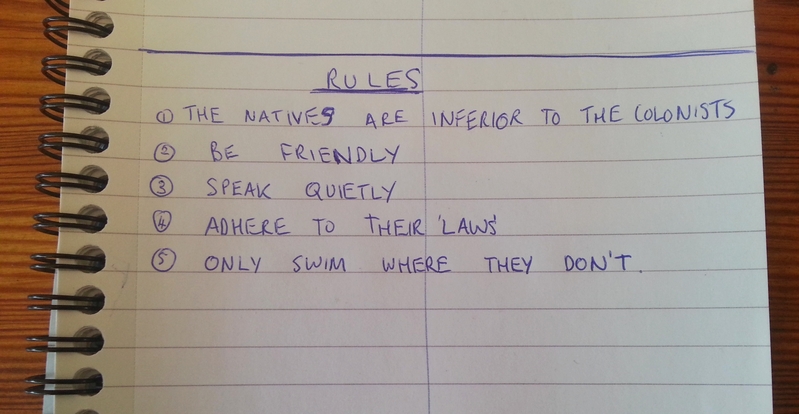 RULES
① THE NATIVES ARE INFERIOR TO THE COLONISTS
② BE FRIENDLY
③ SPEAK QUIETLY
④ ADHERE TO THEIR 'LAWS'
⑤ ONLY SWIM WHERE THEY DON'T.